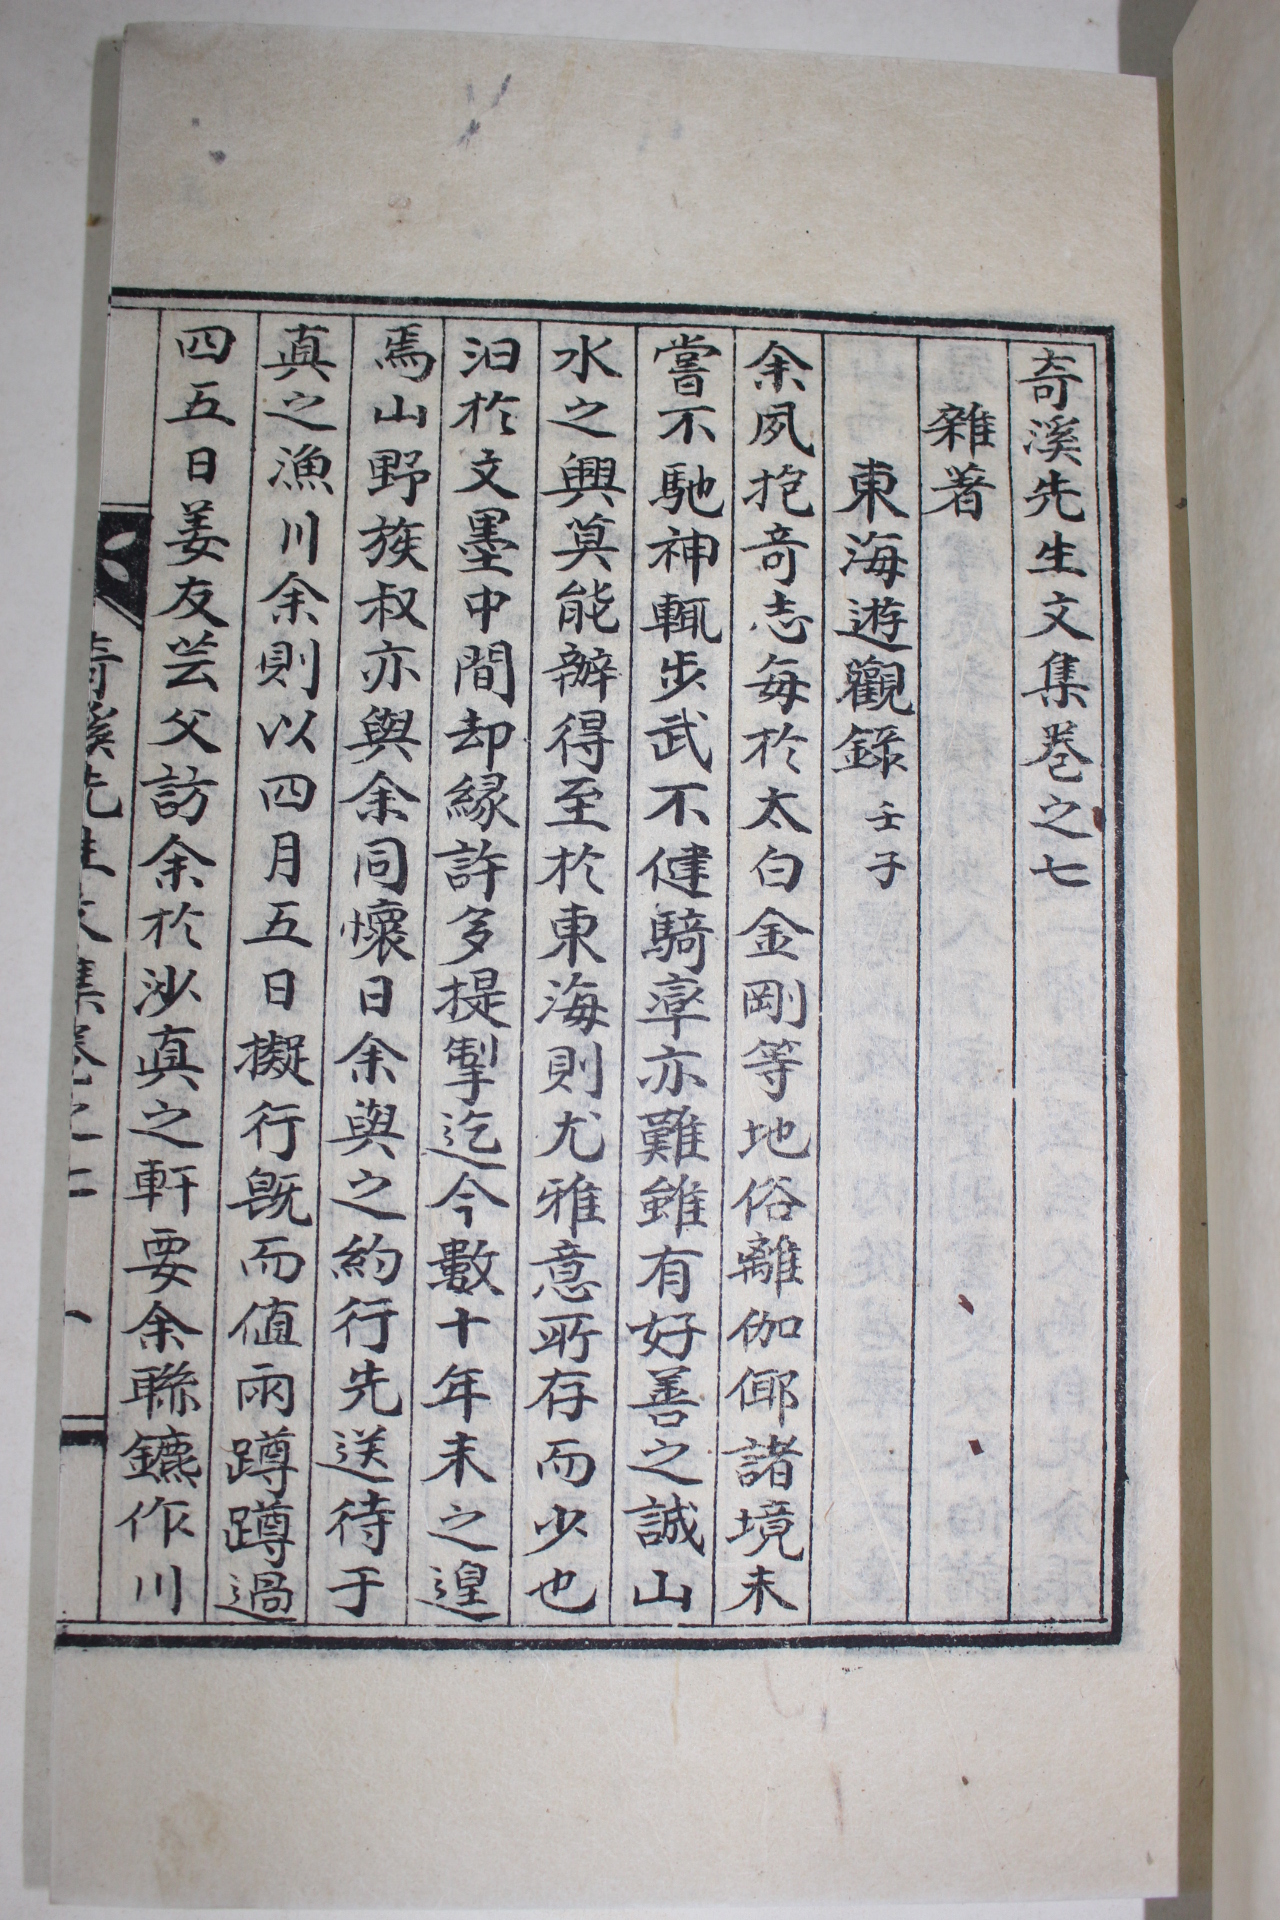 奇溪先生文集卷之七
雜著
東海遊觀錄 壬子
余夙抱奇志每於太白金剛等地俗離伽倻諸境未
嘗不馳神輒步武不健騎率亦難雖有好善之誠山
水之興莫能辦得至於東海則尤雅意所存而少也
汨於文墨中間却緣許多提掣迄今數十年未之遑
焉山野族叔亦與余同懷日余與之約行先送待于
真之漁川余則以四月五日擬行旣而値雨蹲蹲過
四五日姜友芸父訪余於沙眞之軒要余聯鑣作川
奇溪先生文集卷之七